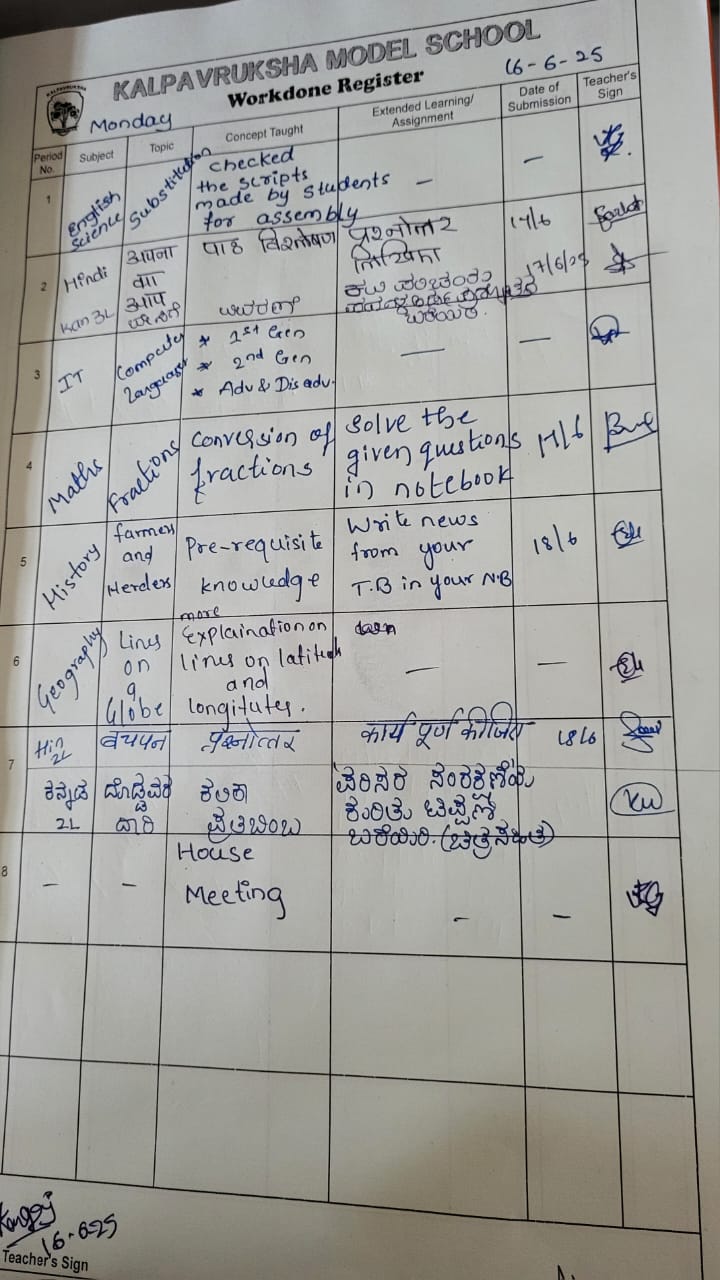 KALPAVRUKSHA
KALPAVRUKSHA MODEL SCHOOL
Workdone Register
16-6-25
Monday
Period No. Subject Topic Concept Taught Extended Learning/ Assignment Date of Submission Teacher's Sign
1 English Science Substitution checked the scripts made by students for assembly – –
2 Hindi अपना पाठ विश्लेषण प्रश्नोत्तर लिखिए 17/6
Kan 3L 17/6/25
3 IT Computer Language * 1st Gen * 2nd Gen * Adv & Disadv. — –
4 Maths Fractions Conversion of fractions Solve the given questions in notebook 17/6
5 History farmers and Herders Pre-requisite knowledge Write news from your T.B in your N.B 18/6
6 Geography Lines on a Globe more Explaination on lines on latitude and longitutes. — —
7 Hin 2L बचपन प्रश्नोत्तर कार्य पूर्ण कीजिए 18/6
ಕನ್ನಡ 2L ದೊಡ್ಡವರ ದಾರಿ ಕಲಿಕಾ ಪ್ರತಿಬಿಂಬ ಪರಿಸರ ಸಂರಕ್ಷಣೆಯ ಕುರಿತು ಟಿಪ್ಪಣಿ ಬರೆಯಿರಿ. (ಚಿತ್ರಸಹಿತ) KW
8 – – House Meeting – –
16-6-25
Teacher's Sign